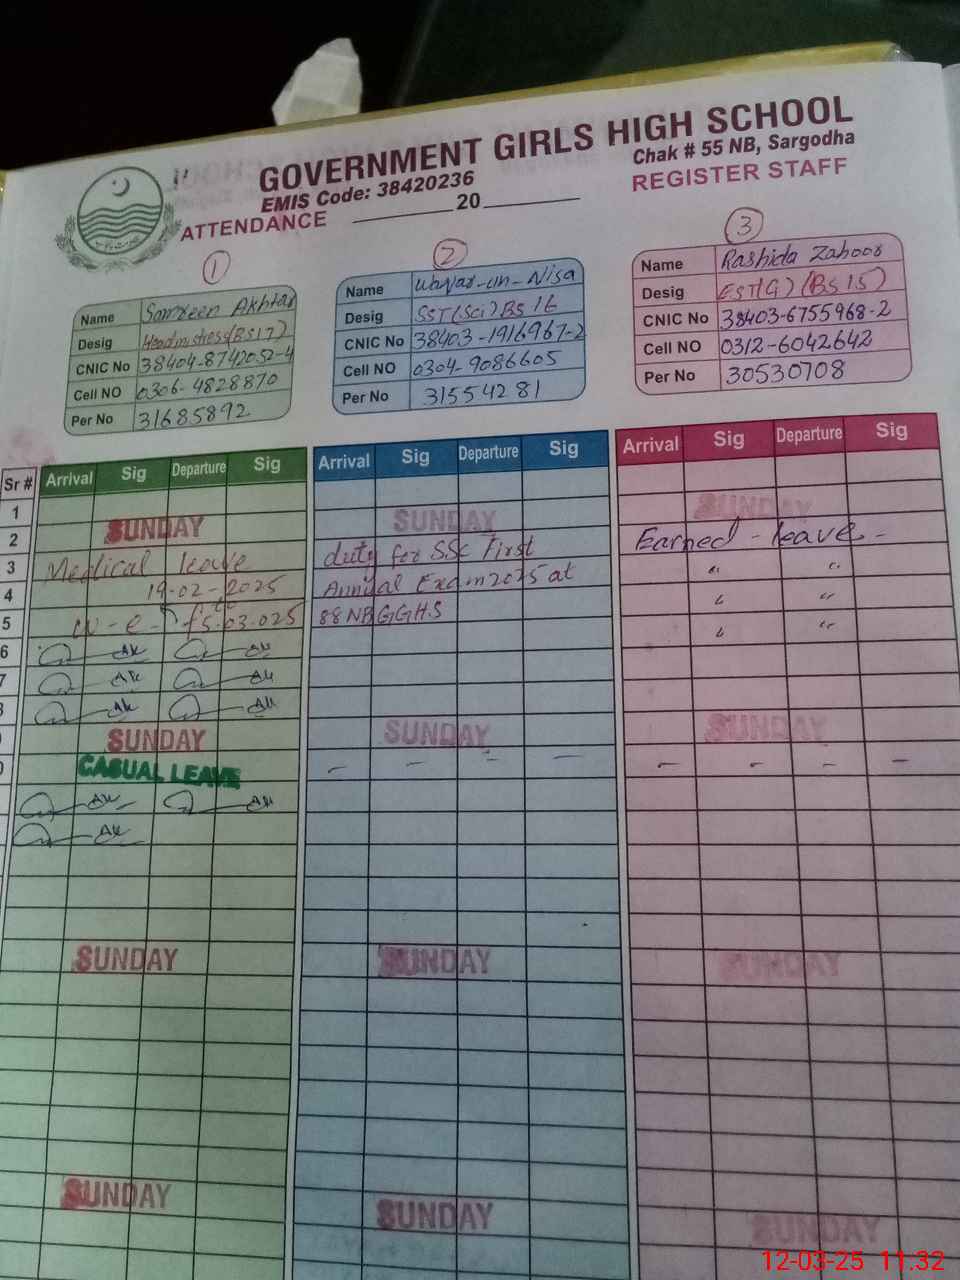 GOVERNMENT GIRLS HIGH SCHOOL
EMIS Code: 38420236
Chak # 55 NB, Sargodha
ATTENDANCE 20
REGISTER STAFF
1
Name Samreen Akhtar
Desig Headmistress(BS17)
CNIC No 38404-8742052-4
Cell NO 0306-4828870
Per No 31685892
2
Name -un-Nisa
Desig SST(Sci) BS 16
CNIC No 38403-1916967-2
Cell NO 0304-9086605
Per No 31554281
3
Name Rashida Zahoor
Desig EST(G) (BS15)
CNIC No 38403-6755968-2
Cell NO 0312-6042642
Per No 30530708
Sr # Arrival Sig Departure Sig Arrival Sig Departure Sig Arrival Sig Departure Sig
1
2 SUNDAY SUNDAY SUNDAY
3 Medical leave duty for SSC First Earned - leave -
4 19-02-2025 Annual Exam 2025 at
5 w-e-f to 5.03.025 88 NB GGHS
6
7
SUNDAY SUNDAY SUNDAY
CASUAL LEAVE
SUNDAY SUNDAY SUNDAY
SUNDAY SUNDAY SUNDAY
12-03-25 11.32